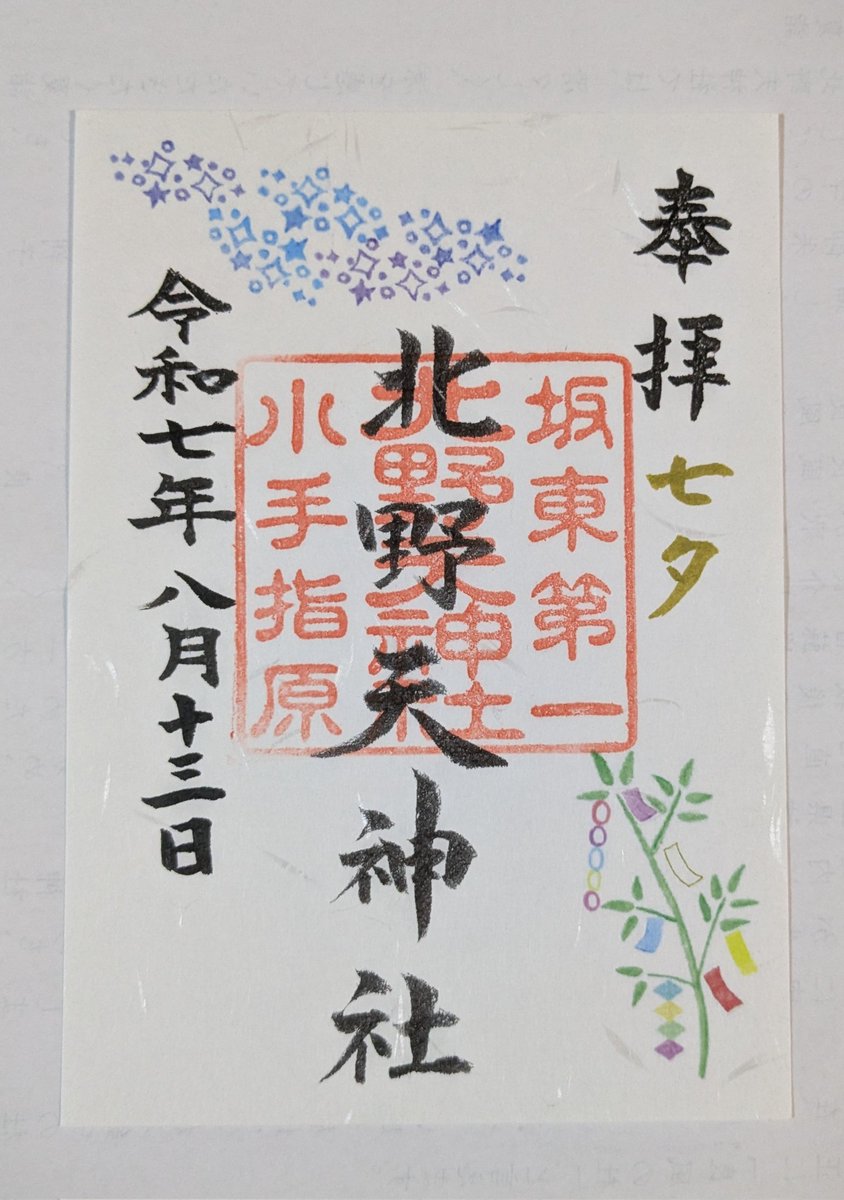 奉拝
七夕
坂東第一
北野天神社
北野天神社
小手指原
令和七年八月十三日